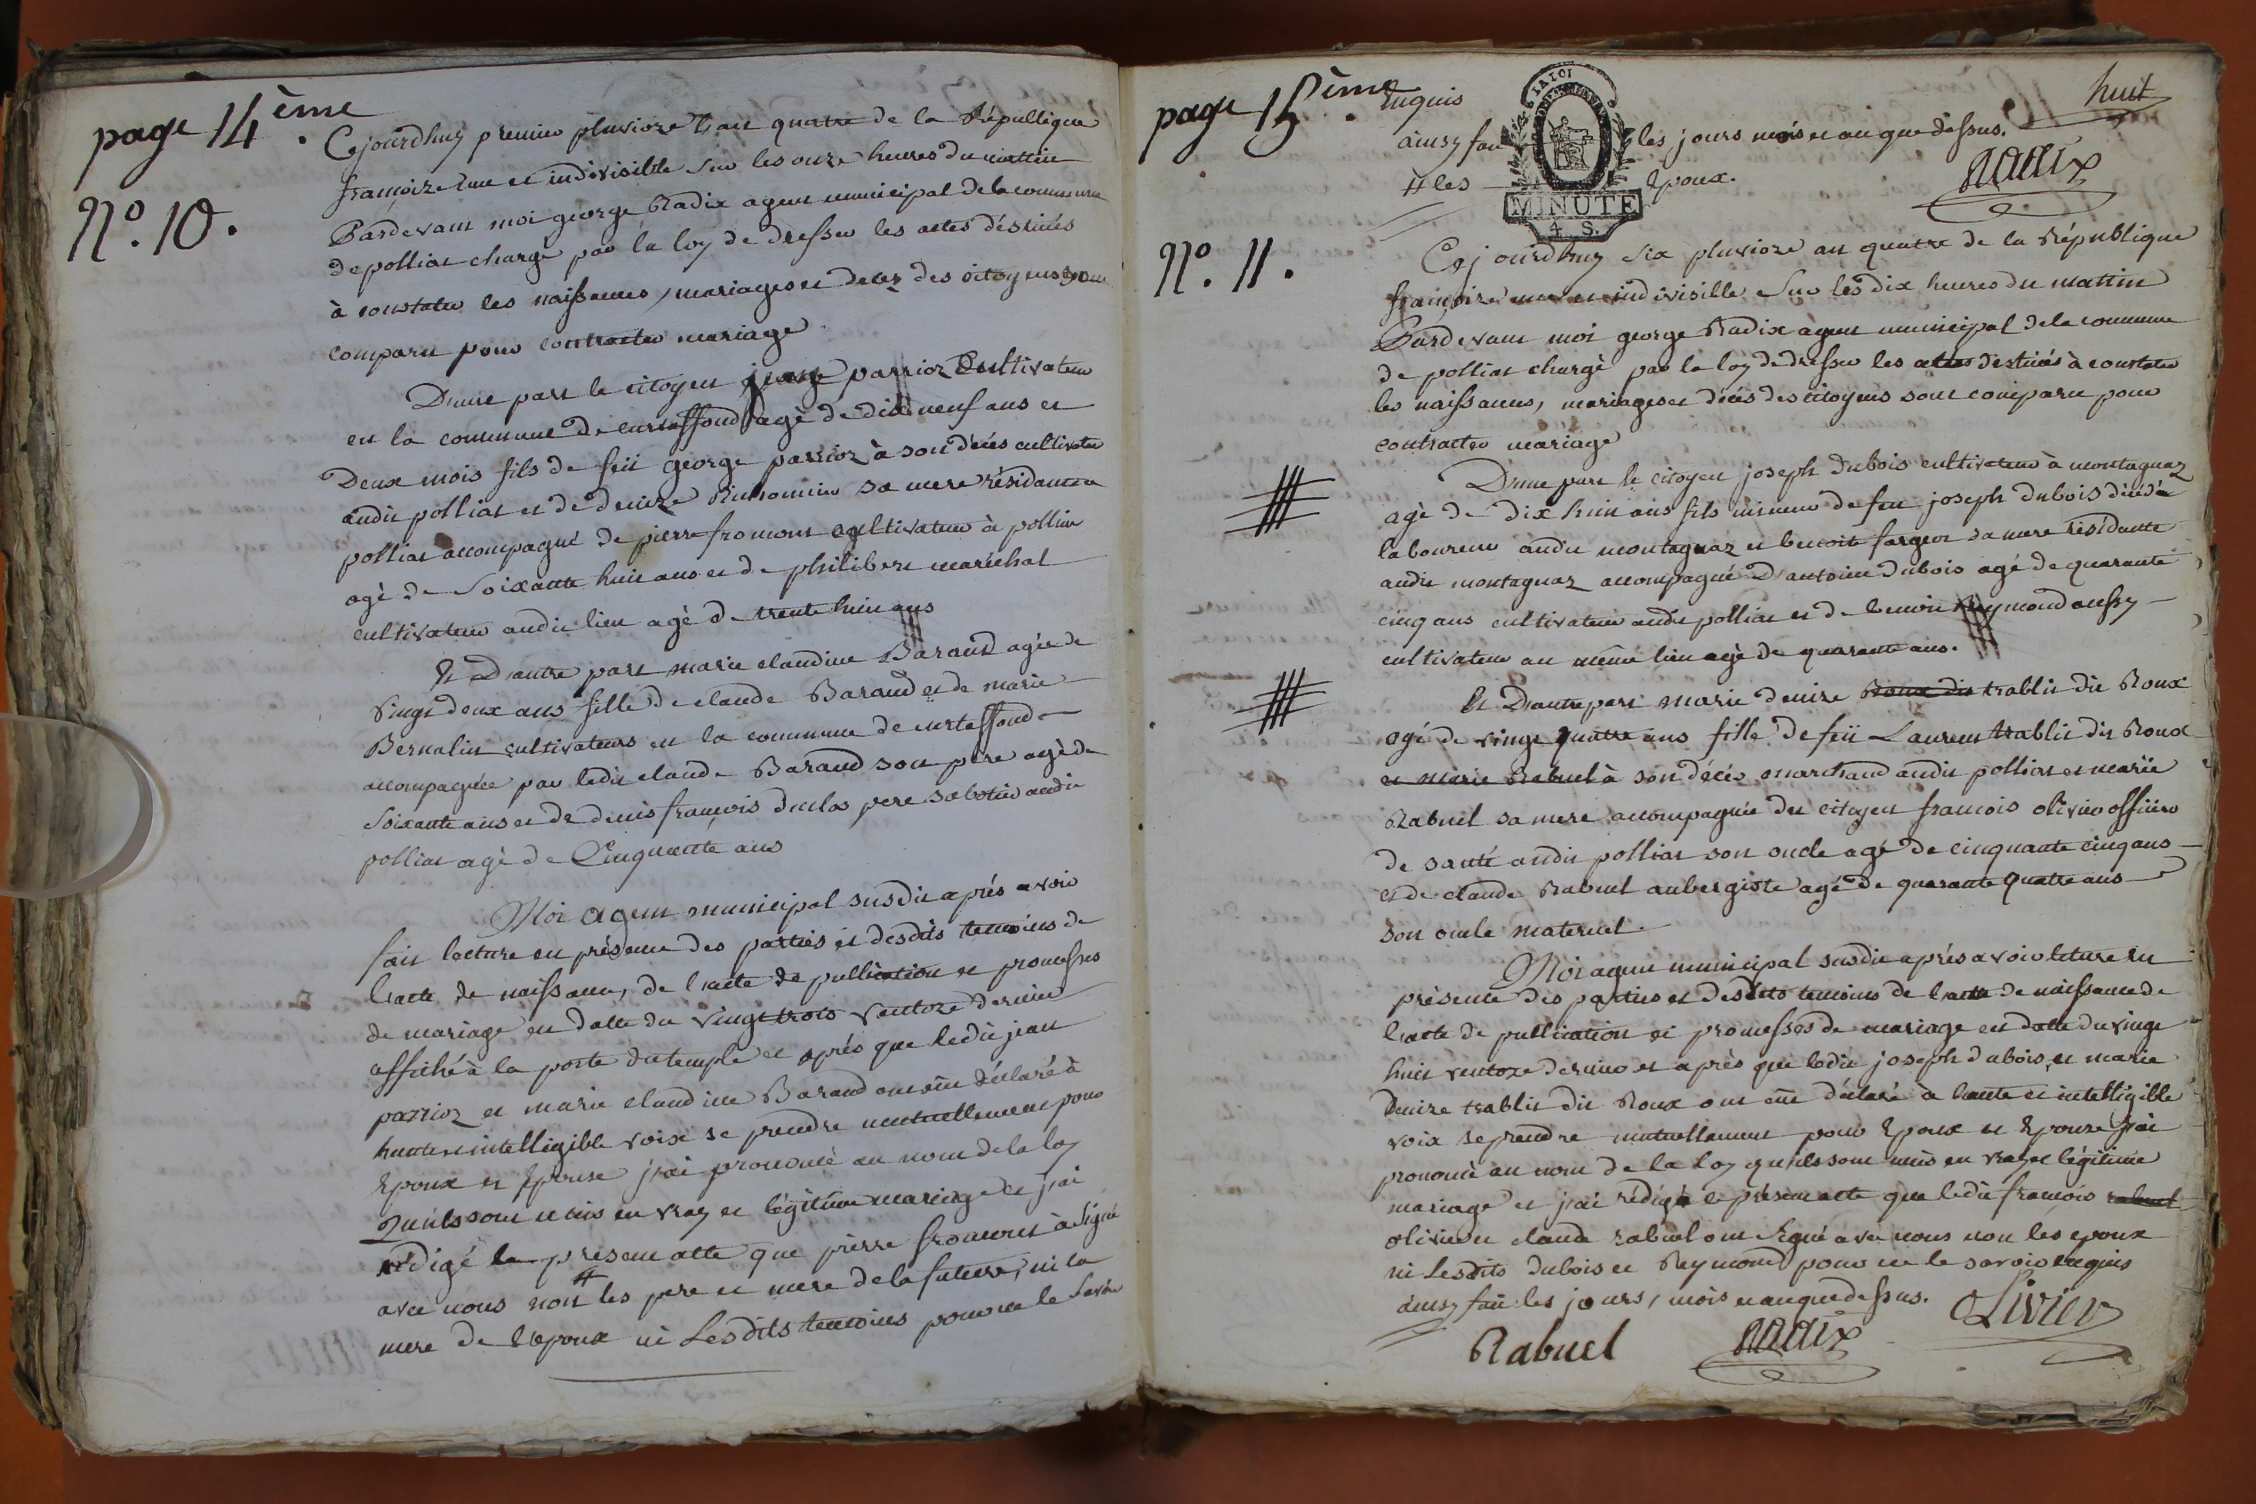 page 14ème.
N°. 10.
Cejourdhuy premier pluvioze l'an quatre de la République
françoize une et indivisible Sur les onze heures du mattin
Pardevant moi george Radix agent municipal de la commune
de polliat chargé par la loy de dresser les actes déstinés
à constater les naissances, mariages et decez des citoyens sont
comparu pour contracter mariage
D'une part le citoyen parrioz Cultivateur
en la commune de curtaffond agé de dix neuf ans et
Deux mois fils de feü george parrioz à son décés cultivateur
audit polliat et de denize sa mere résidante a
polliat accompagné de pierre fromont cultivateur à polliat
agé de Soixante huit ans et de philibert maréchal
cultivateur audit lieu agé de trente huit ans
Et D'autre part marie claudine Baraud agée de
vingt deux ans fille de claude Baraud et de marie
Bernalin cultivateurs en la commune de curtaffond
accompagnée par ledit claude Baraud son pere agé de
Soixante ans et de denis françois duclos pere sabotier audit
polliat agé de Cinquante ans
Moi agent municipal susdit aprés avoir
fait lecture en présence des parties et desdits temoins de
l'acte de naissance, de l'acte de publication et promesses
de mariage en datte du vingt trois ventoze dernier
affiché à la porte du temple et aprés que ledit jean
parrioz et marie claudine Baraud ont eüe déclaré à
haute et intelligible voix se prendre mutuellement pour
Epoux et Epouse j'ai prononcé au nom de la loy
Qu'ils sont unis en vray et légitime mariage et j'ai
rédigé le présent acte que pierre fromont à Signé
avec nous non # les pere et mere de la future, ni la
mere de l'epoux ni Lesdits temoins pour ne le savoir
page 15ème.
Enquis
huit
ainsy fait les jours mois et an que dessus.
# les epoux.
Radix
LA LOI
MINUTE
4. S.
N°. 11.
Cejourdhuy six pluvioze an quatre de la République
françoize une et indivisible Sur les dix heures du mattin
Pardevant moi george Radix agent municipal de la commune
de polliat chargé par la loy de dresser les actes destinés à constater
les naissances, mariages et décés des citoyens sont comparu pour
contracter mariage
D'une part le citoyen joseph dubois cultivateur à montagnaz
agé de dix huit ans fils mineur de feu joseph dubois décédé
laboureur audit montagnaz et benoite fargeot sa mere résidante
audit montagnaz accompagné D'antoine dubois agé de quarante
cinq ans cultivateur audit polliat et de benoit Reymond aussy
cultivateur au même lieu agé de quarante ans.
Et D'autre part marie denize Roux dit trablit dit Roux
agé de vingt quatre ans fille de feü Laurent trablit dit Roux
et marie Rabuel à son décès marchand audit polliat et marie
Rabuel sa mere accompagnée du citoyen francois olivier officier
de santé audit polliat son oncle agé de cinquante cinq ans
et de claude Rabuel aubergiste agé de quarante quatre ans
son oncle maternel.
Moi agent municipal susdit aprés avoir lecture en
présence des parties et desdits temoins de l'acte de naissance de
l'acte de publication et promesses de mariage en datte du vingt
huit ventoze dernier et aprés que ledit joseph dubois et marie
denize trablit dit Roux ont eüe déclaré à haute et intelligible
voix se prendre mutuellement pour Epoux et Epouze j'ai
prononcé au nom de la Loy qu'ils sont unis en vray et légitime
mariage et j'ai rédigé le présent acte que ledit francois rabuel
olivier et claude rabuel ont signé avec nous non les epoux
ni Lesdits dubois et Reymond pour ne le savoir enquis
ainsy fait les jours, mois et an que dessus.
Olivier
Rabuel
Radix